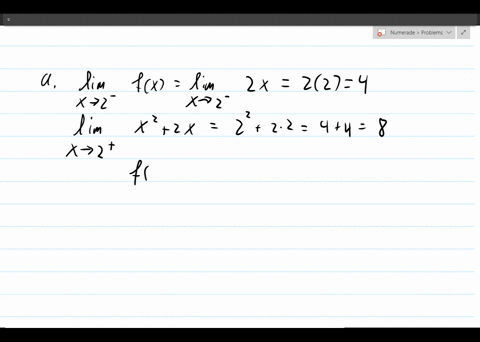 Numerade > Problems
a. lim x→2⁻ f(x) = lim x→2⁻ 2x = 2(2) = 4
lim x→2⁺ x² + 2x = 2² + 2·2 = 4 + 4 = 8
f(